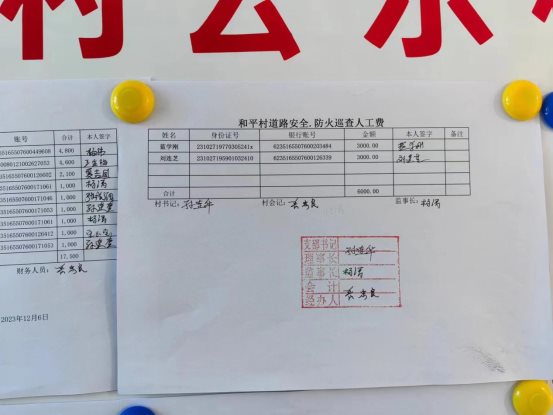 村公示
和平村道路安全.防火巡查人工费
姓名 身份证号 银行账号 金额 本人签字 备注
董学刚 23102719770305241x 6235165507600203484 3000.00 董学刚
刘连芝 231027195901032410 6235165507600126339 3000.00
合计 6000.00
村书记: 村会记: 监事长: 杨涛
支部书记
理事长
监事长 杨涛
会计
经办人
账号 合计 本人签字
35165507600449608 4,800
0080123002627053 4,600
35165507600120602 2,100
35165507600171061 1,000 杨涛
35165507600171046 1,000
35165507600171053 1,000
35165507600171061 1,000 杨涛
35165507600126412 1,000
35165507600171053 1,000
17,500
财务人员:
2023年12月6日